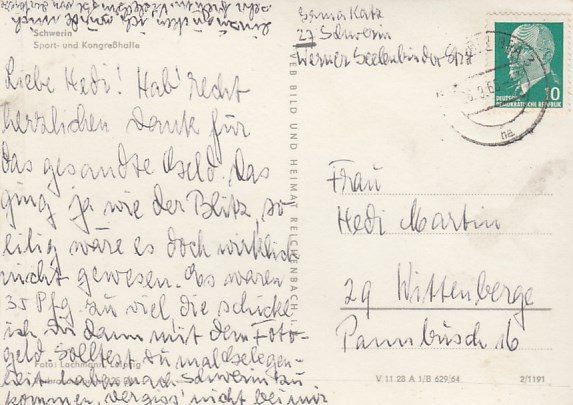 Schwerin
Sport- und Kongreßhalle
Liebe Hedi! Hab' recht
herzlichen Dank für
das gesandte Geld. Das
ging ja wie der Blitz, so
eilig wäre es doch wirklich
nicht gewesen. Es waren
35 Pfg. zu viel die schicke
ich Dir dann mit dem Foto-
geld. Solltest Du mal Gelegen-
heit haben nach Schwerin zu
kommen, vergiss' nicht bei mir
Foto: Lachmann, Leipzig
VEB BILD UND HEIMAT REICHENBACH
Katz
27 Schwerin
DEUTSCHE
DEMOKRATISCHE REPUBLIK
10
Frau
Hedi Martin
29 Wittenberge
16
V 11 28 A 1/B 629/64
2/1191